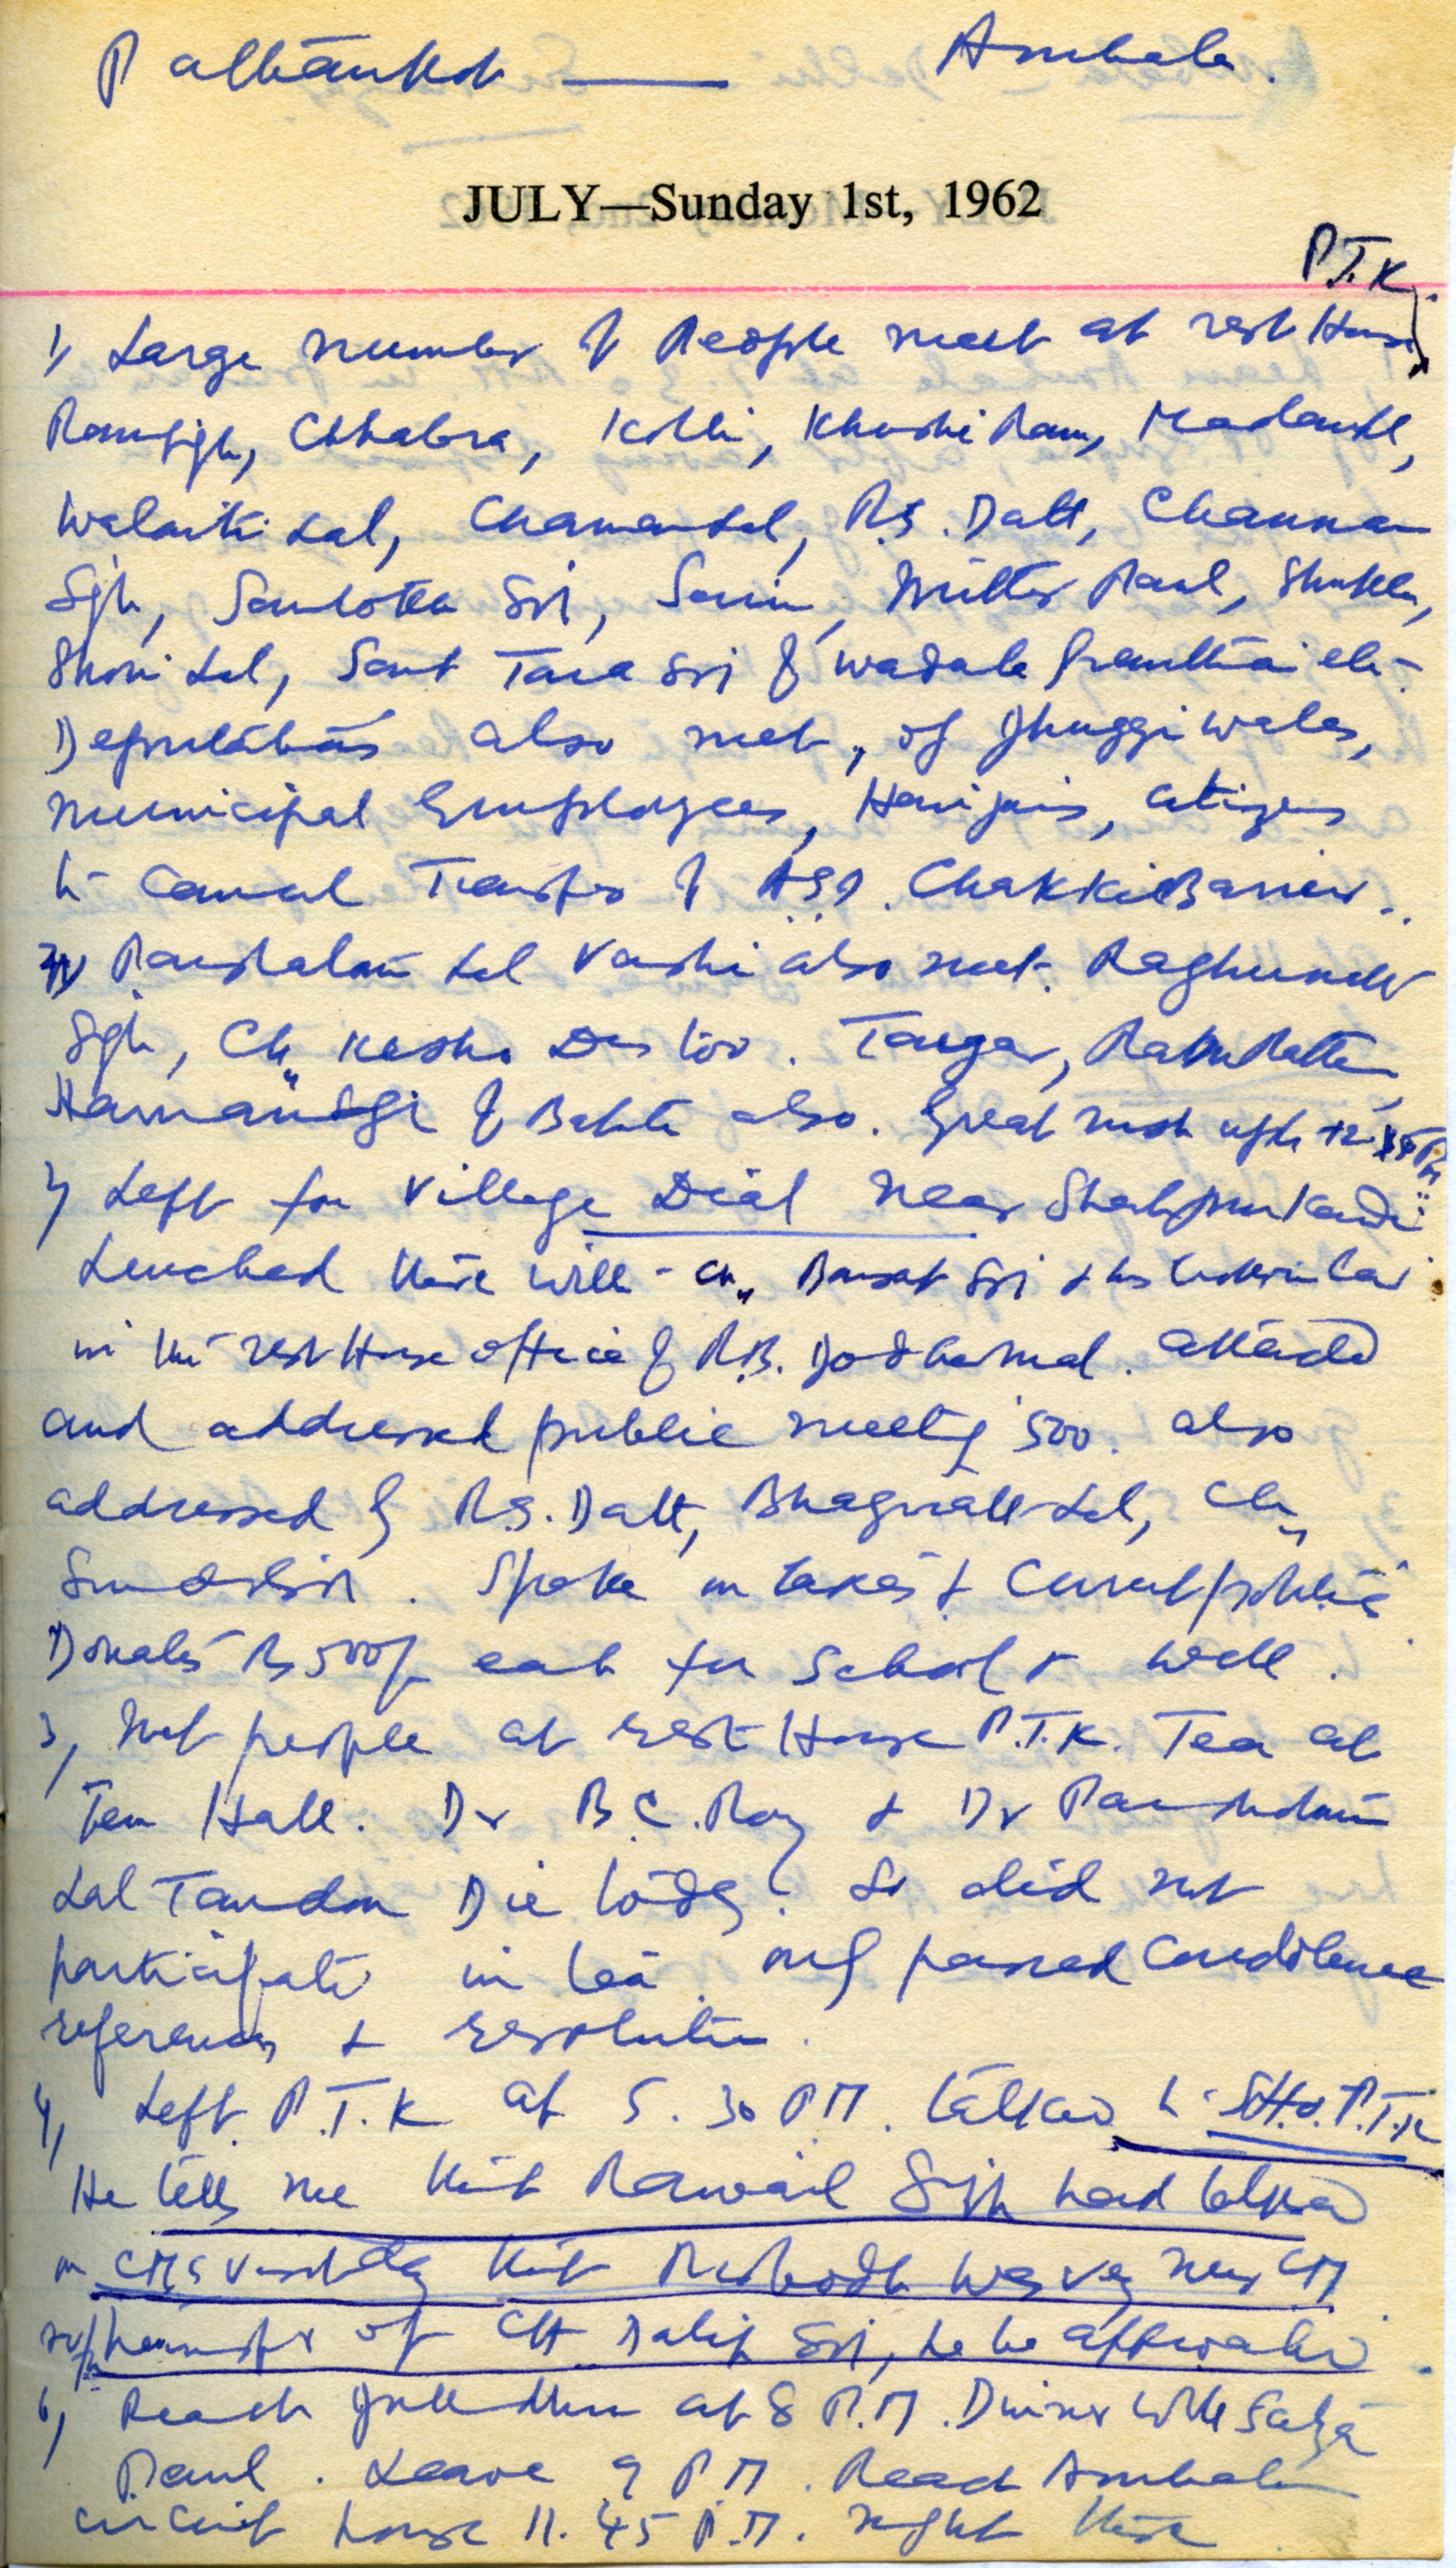 Pathankot — Ambala.
JULY—Sunday 1st, 1962
P.T.K.
1) Large number of People meet at rest House
Ramsigh, Chhabra, Kohli, Khushi Ram, Madanlal,
Walaiti Lal, Chamanlal, R.S. Datt, Channan
Sgh, Santokh Sgh, Sain, Mitter Paul, Shukla,
Shori Lal, Sant Tara Sgh of Wadala Granthian etc.
Deputations also met, of Jhuggiwalas,
Municipal Employees, Harijans, Citizens
to Cancel Transfer of ASI. Chakki Barrier.
Parshotam Lal Vashi also met. Raghunath
Sgh, Ch. Kesho Das too. Tangar, Ram Rattan
Harnam Sgh of also. Great rush upto 12.
2) Left for Village Dial near Shahpur Kandi
Lunched there with Ch,, Sgh &
in the rest House office of R.B. Jodhamal. attended
and addressed public meeting 500. also
addressed by R.S. Datt, Bhagwatt Lal, Ch,,
Sunder Sgh. Spoke on taxes & Current politics
Donates Rs 500/- each for School & Well.
3, Met people at rest House P.T.K. Tea at
Town Hall. Dr B.C. Roy & Dr Parshotam
Lal Tandon Die today. So did not
participate in tea. only passed Condolence
references & resolution.
4, Left P.T.K at 5.30 P.M. talked to S.H.O. P.T.K
He tells me that Rawail Singh had talked
on CM's visit day that Prabodh was very near CM
transfer of Ch Dalip Sgh, to be
6, Reach Jullundhur at 8 P.M. Dinner with Satya
Paul. Leave 9 P.M. Reach Ambala
circuit house 11.45 P.M. night there